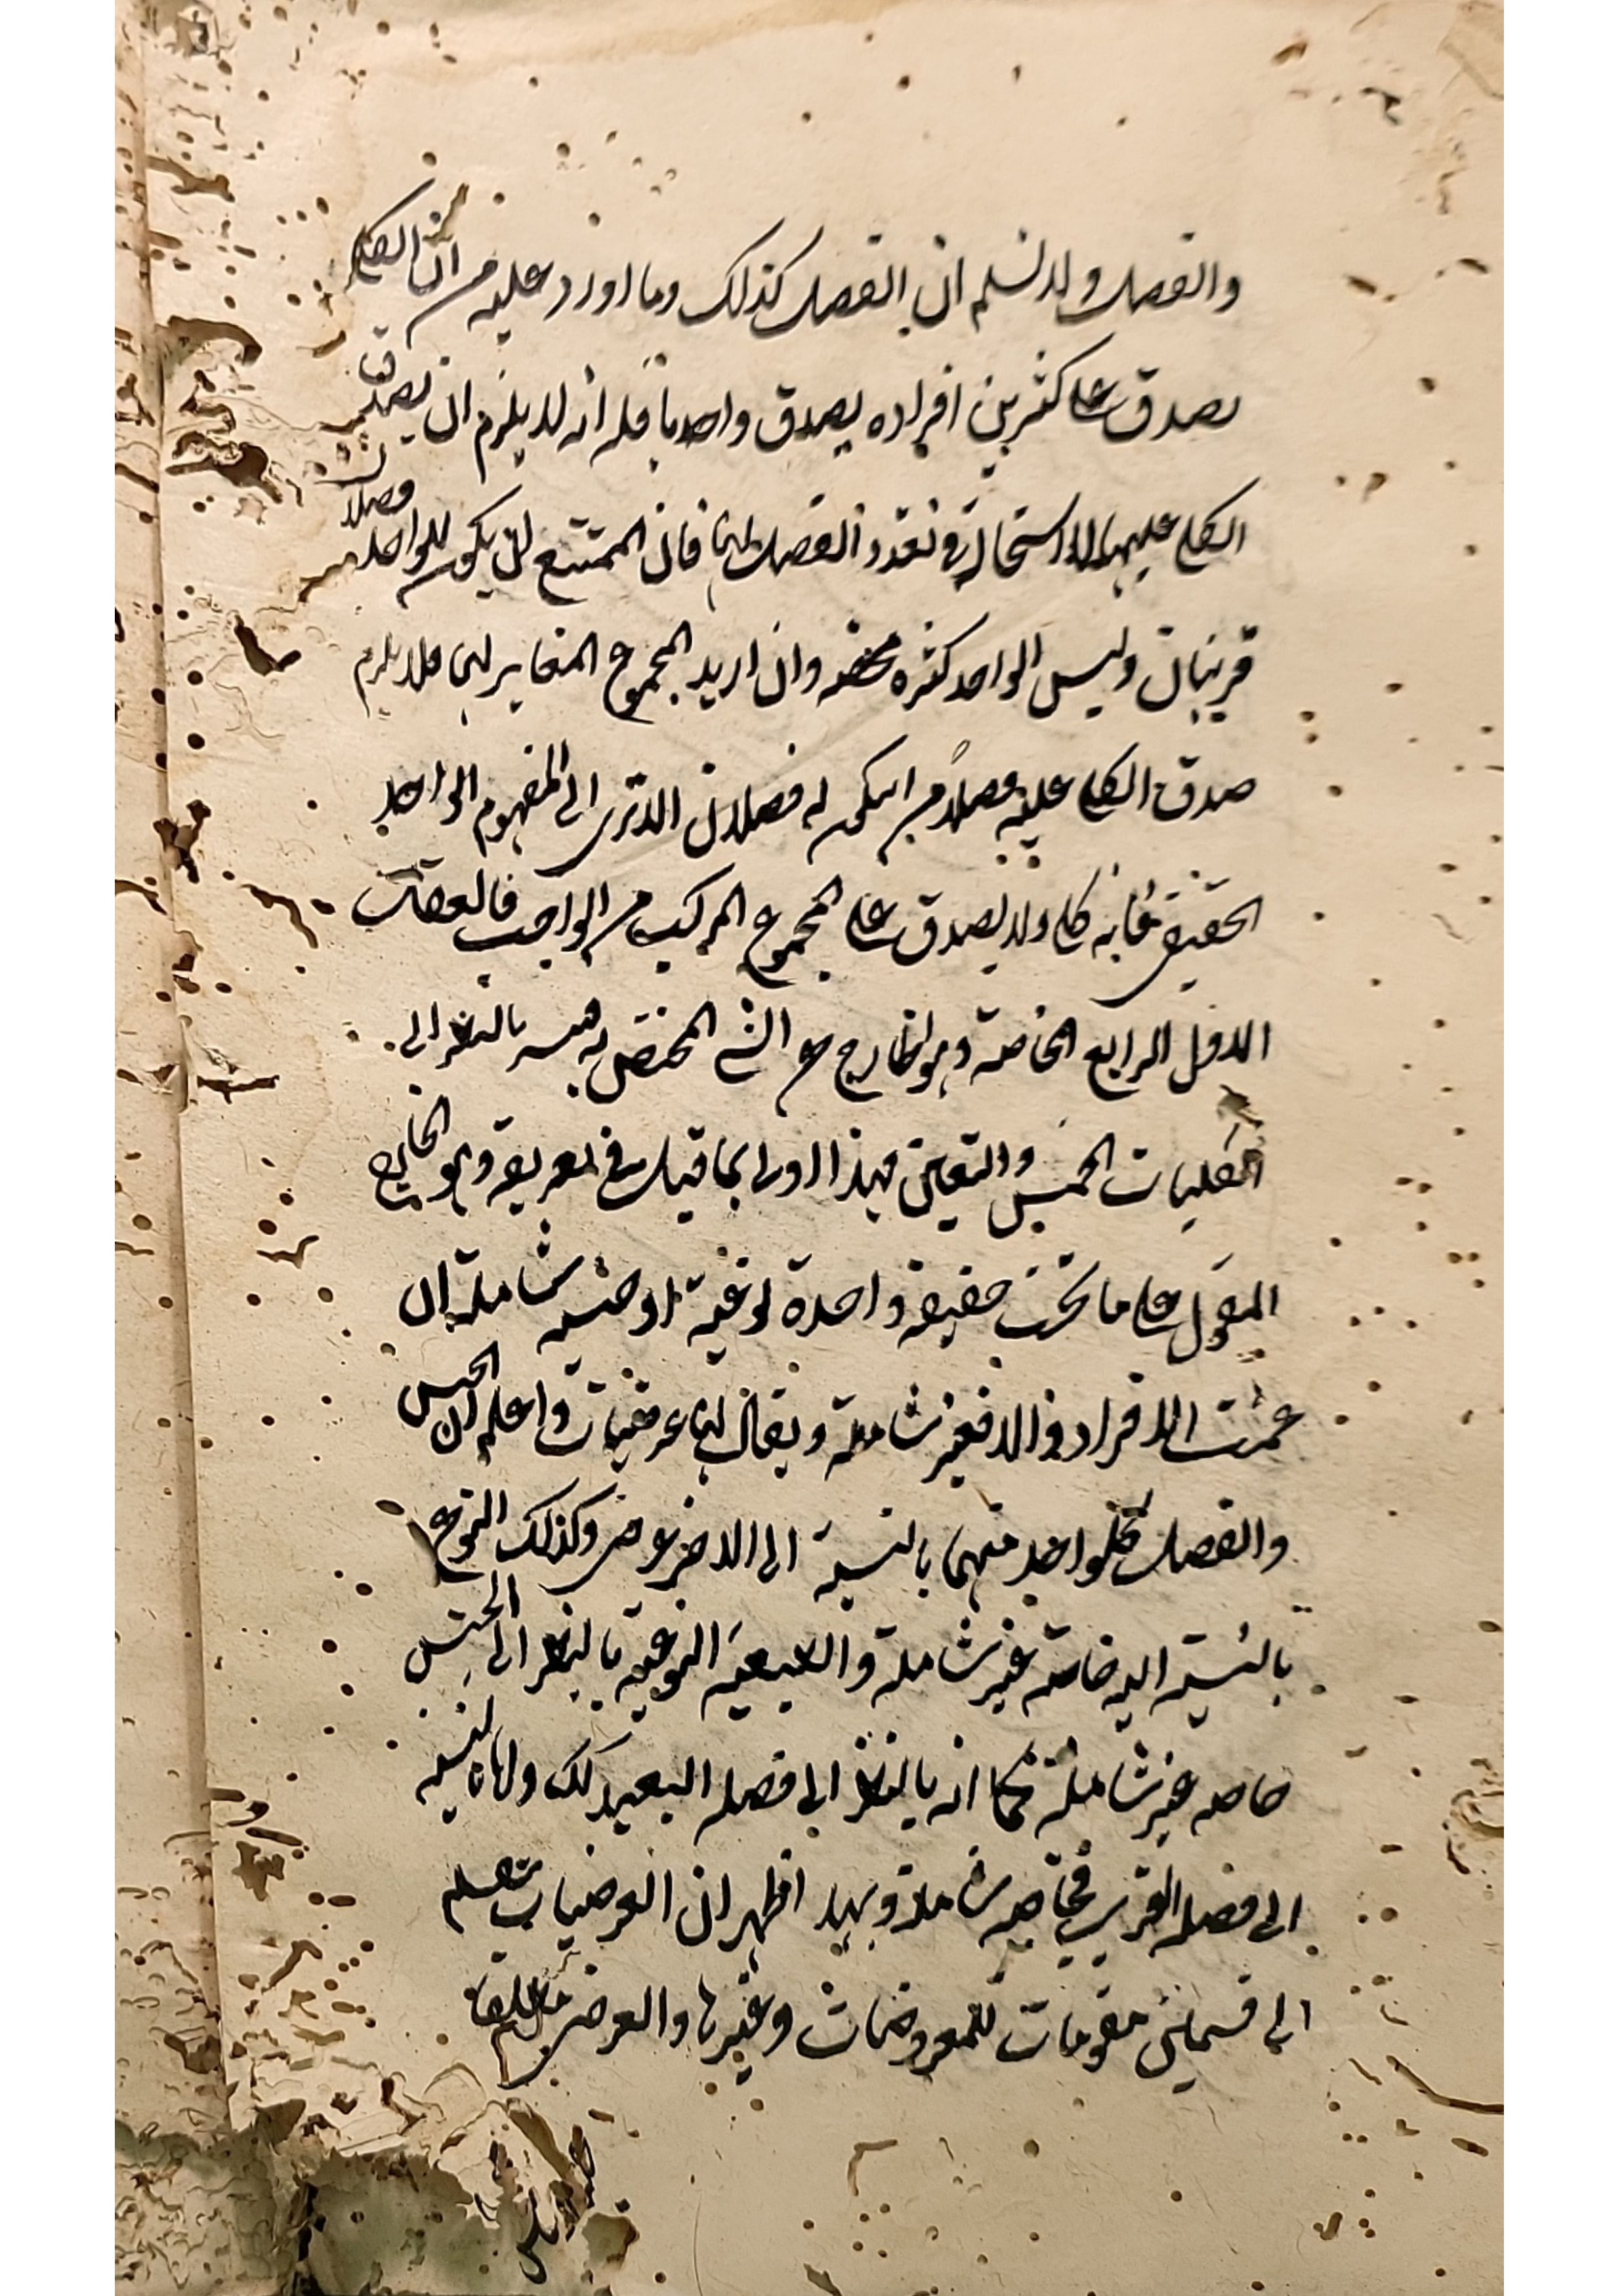 والفصل ولا نسلم ان الفصل كذلك وما اورد عليه من ان الكلي
يصدق على كثيرين افراده يصدق واحد انه لا يلزم ان يصدق
الكلي عليهما لا استحالة في تعدد الفصل لهما فان الممتنع ان يكون للواحد فصلان
قريبان وليس الواحد كثرة محضة وان اريد المجموع المغاير لهما فلا يلزم
صدق الكلي عليه فصلا من ان يكون له فصلان الا ترى الى المفهوم الواحد
الحقيقي فانه كلي ولا يصدق على المجموع المركب من الواجب
الرابع الخاصة وهو الخارج عن الشي المختص به بالنظر الى
الكليات الخمس والتعين فهذا اولى مما قيل في تعريفه وهو الخارج
المقول على ما تحت حقيقة واحدة نوعية او جنسية شاملة ان
عمت الافراد والا فغير شاملة ويقال لهما عرضيات واعلم ان الجنس
والفصل فكلواحد منهما بالنسبة الى الاخر عرضي وكذلك النوع
بالنسبة اليه خاصة غير شاملة والطبيعة النوعية بالنظر الى الجنس
خاصة غير شاملة كما انه بالنظر الى فصله البعيد كك واما بالنسبة
الى فصله القريب فخاصة شاملة وبهذا ظهر ان العرضيات تنقسم
الى قسمين مقومات للمعروضات وغيرها والعرضي